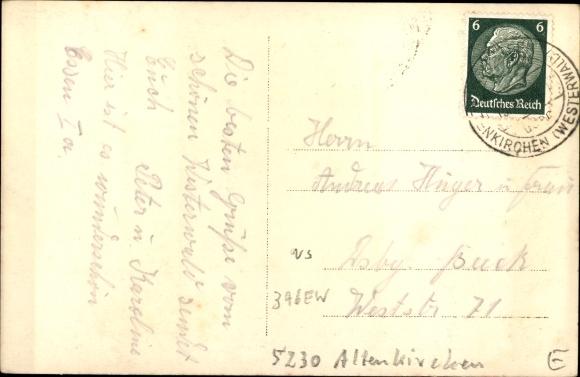 Die besten Grüße vom
schönen Westerwald sendet
Euch Peter u Karoline
Hier ist es wunderschön
Essen I a
6 6
Deutsches Reich
ENKIRCHEN (WESTERWALD)
Herrn
Andreas Höger u Frau
Dsbg. Buck
Weststr 71
vs
396EW
5230 Altenkirchen
E